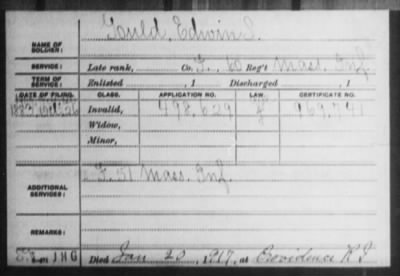 Gould, Edwin S.
NAME OF SOLDIER:
SERVICE: Late rank, Co. F, 60 Reg't Mass. Inf.
TERM OF SERVICE: Enlisted , 1 Discharged , 1
DATE OF FILING. CLASS. APPLICATION NO. LAW. CERTIFICATE NO.
1883 Invalid, 498,629
Widow,
Minor,
ADDITIONAL SERVICES: F. 51 Mass. Inf.
REMARKS:
Died Jan 20, 1917, at Providence R I